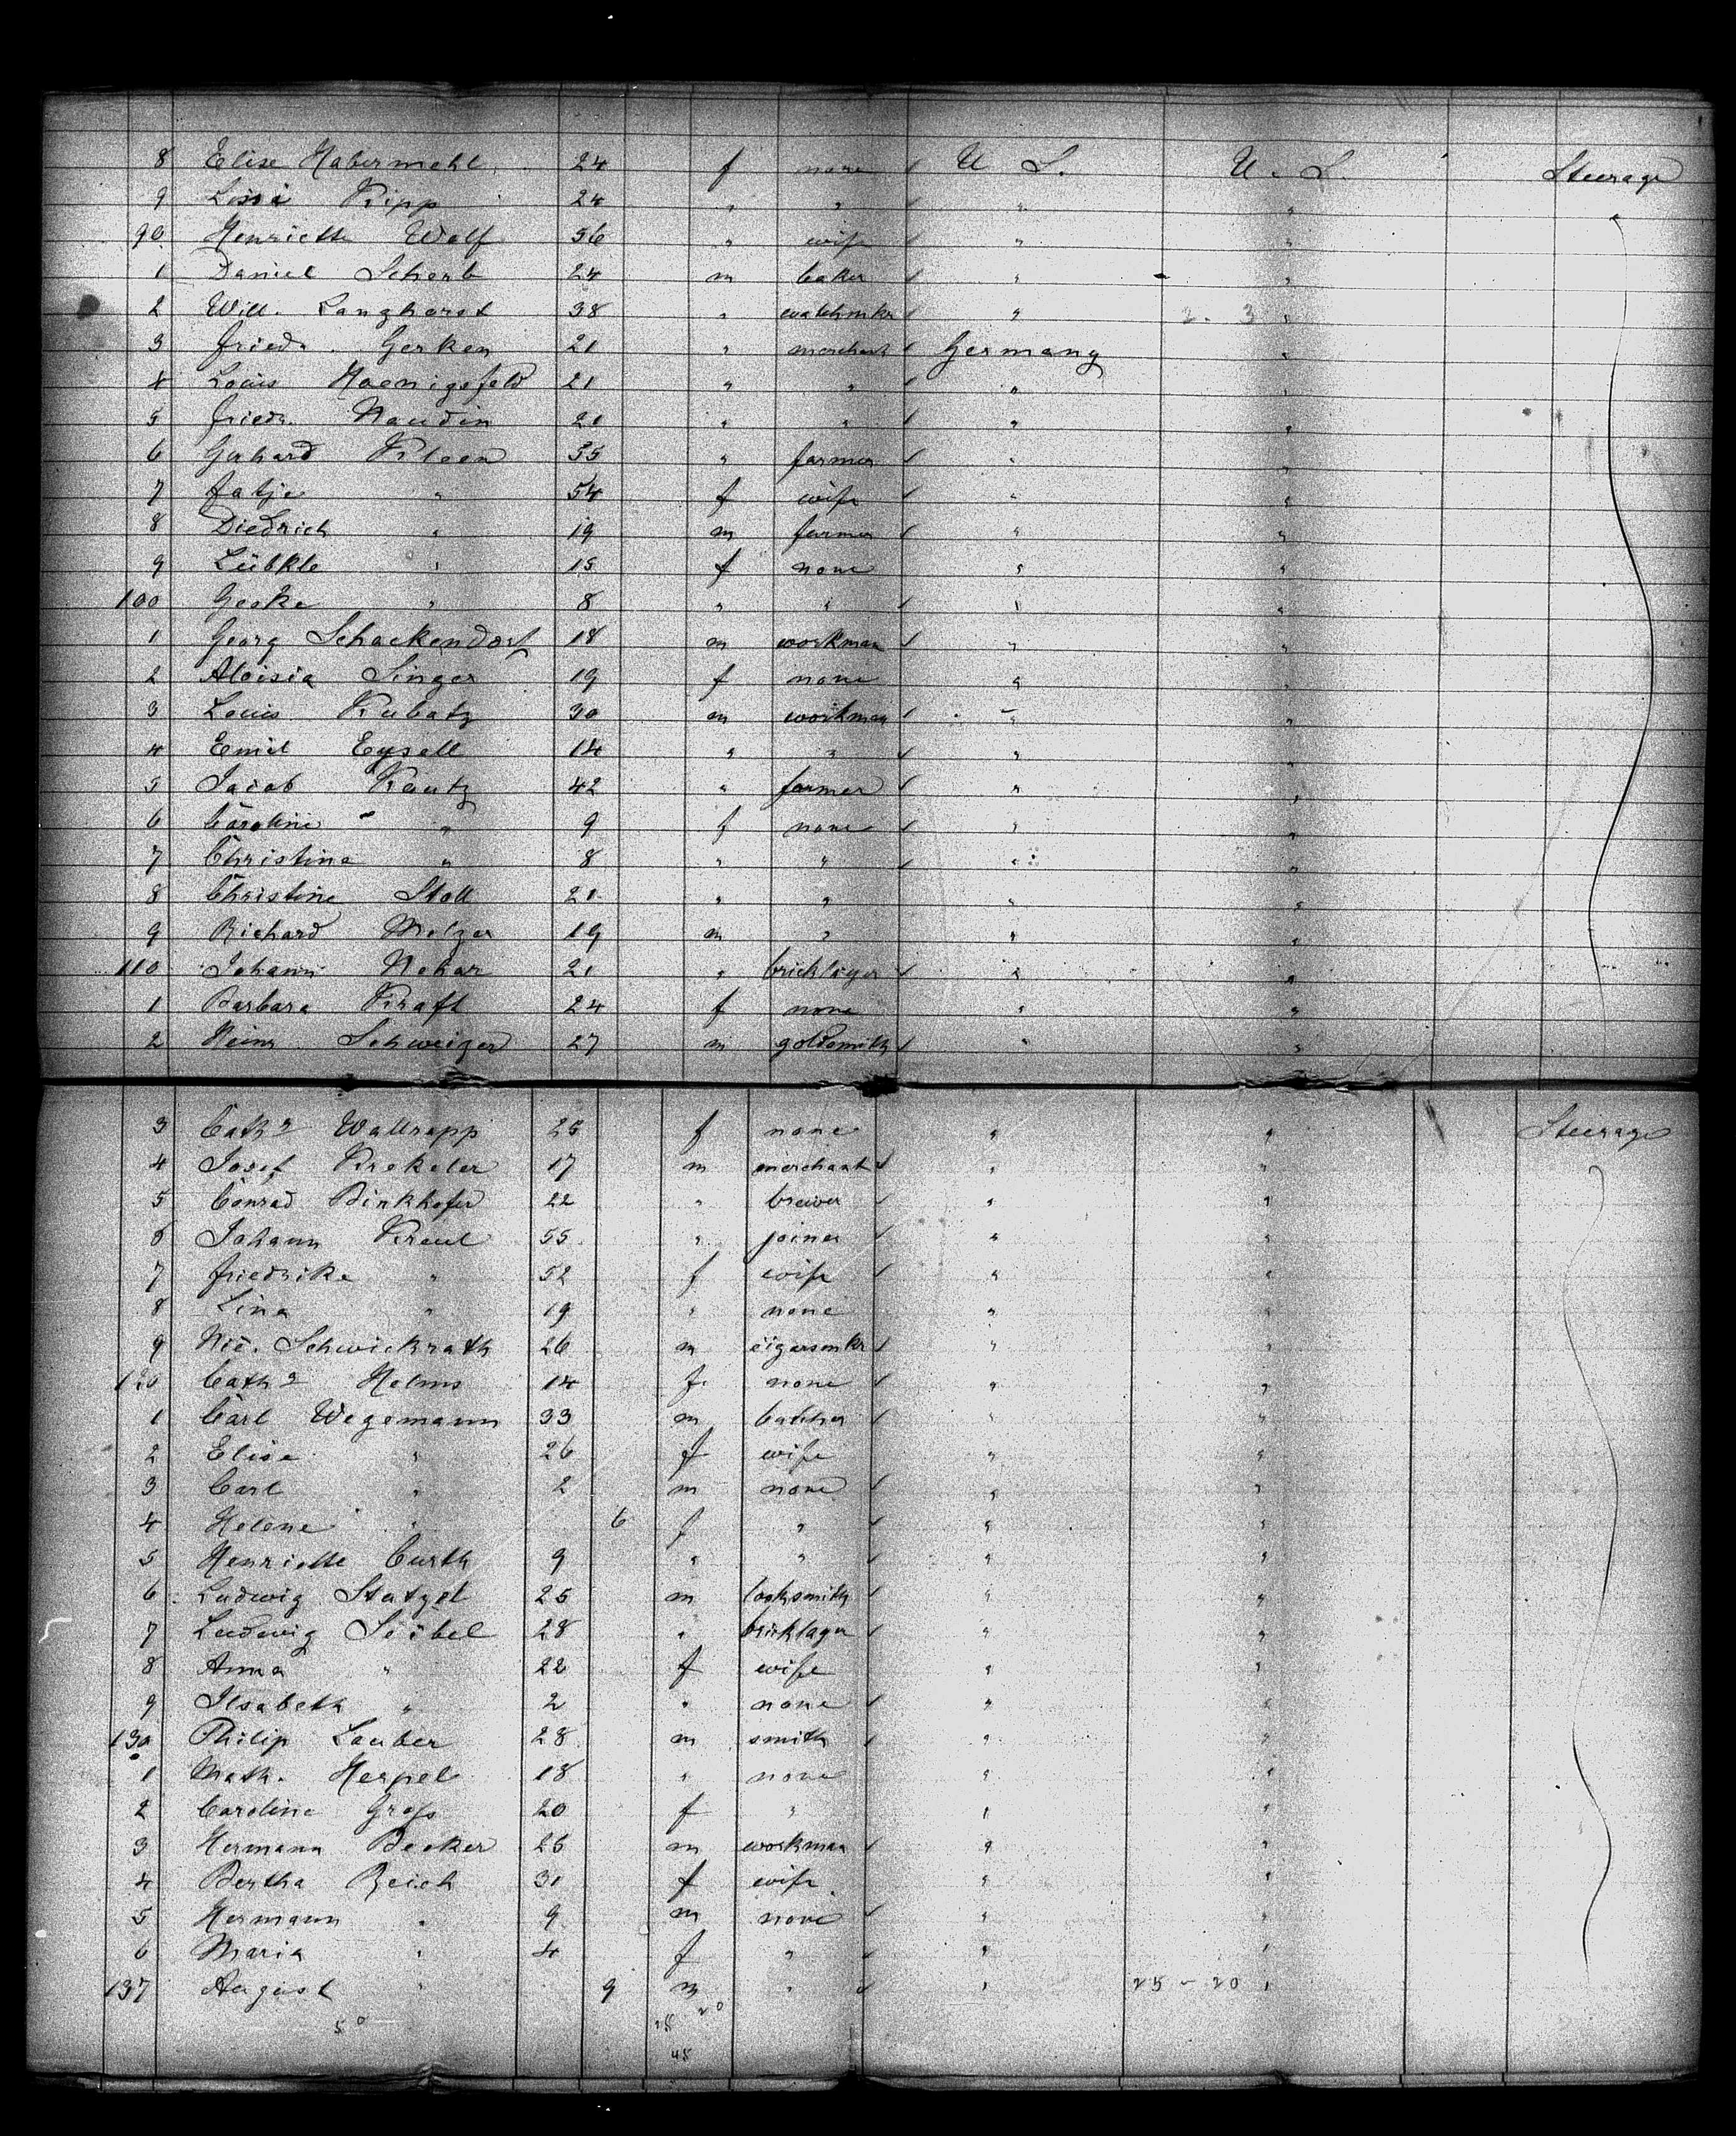 8 Elise Habermehl 24 f none ✓ U. S. U. S. Steerage
9 Lissi Kipp 24 " " ✓ " " "
90 Henriette Wolf 56 " wife ✓ " "
1 Daniel Scherb 24 m baker ✓ " "
2 Will. Langhorst 38 " watchmkr ✓ " 2. 3 "
3 Friedr. Gerken 21 " merchant ✓ Germany "
4 Louis Hoenigsfeld 21 " " ✓ " "
5 Friedr. Naudin 21 " " ✓ " "
6 Gerhard Kleen 55 " farmer ✓ " "
7 Fatje " 54 f wife ✓ " "
8 Diedrich " 19 m farmer ✓ " "
9 Lübkle " 15 f none " "
100 Geske " 8 " " ✓ " "
1 Georg Schackendorf 18 m workman ✓ " "
2 Aloisia Singer 19 f none " "
3 Louis Kubatz 30 m workman ✓ " "
4 Emil Eysell 14 " " ✓ " "
5 Jacob Kautz 42 " farmer ✓ " "
6 Caroline " 9 f none ✓ " "
7 Christine " 8 " " ✓ " "
8 Christine Stoll 21 " " " "
9 Richard Melzer 19 m " " "
110 Johann Nehar 21 " bricklayer ✓ " "
1 Barbara Kraft 24 f none " "
2 Heinr. Schweizer 27 m goldsmith ✓ " "
3 Cath^a Wallrapp 25 f none " " Steerage
4 Josef Krekeler 17 m merchant ✓ " "
5 Conrad Binkhofer 22 " brewer ✓ " "
6 Johann Kreul 55 " joiner ✓ " "
7 Friedrike " 52 f wife ✓ " "
8 Lina " 19 " none " "
9 Nic. Schwickrath 26 m cigarsmkr ✓ " "
120 Cath^a Helms 14 f. none ✓ " "
1 Carl Wegemann 33 m butcher ✓ " "
2 Elise " 26 f wife " "
3 Carl " 2 m none ✓ " "
4 Helene " 6 f " ✓ " "
5 Henriette Curth 9 " " ✓ " "
6 Ludwig Statzel 25 m locksmith ✓ " "
7 Ludwig Seibel 28 " bricklayer ✓ " "
8 Anna " 22 f wife " "
9 Ilsabeth " 2 " none ✓ " "
130 Philip Lauber 28 m smith ✓ " "
1 Math. Herpel 18 " none " "
2 Caroline Groß 20 f " " "
3 Hermann Becker 26 m workman ✓ " "
4 Bertha Reich 31 f wife " "
5 Hermann " 9 m none ✓ " "
6 Maria " 4 f " ✓ " "
137 August " 9 m " ✓ " 25 - 20 "
5 0 20
45